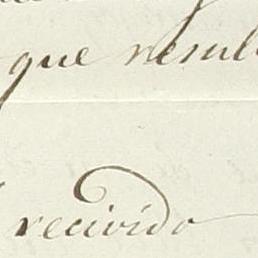 que resul
recivido